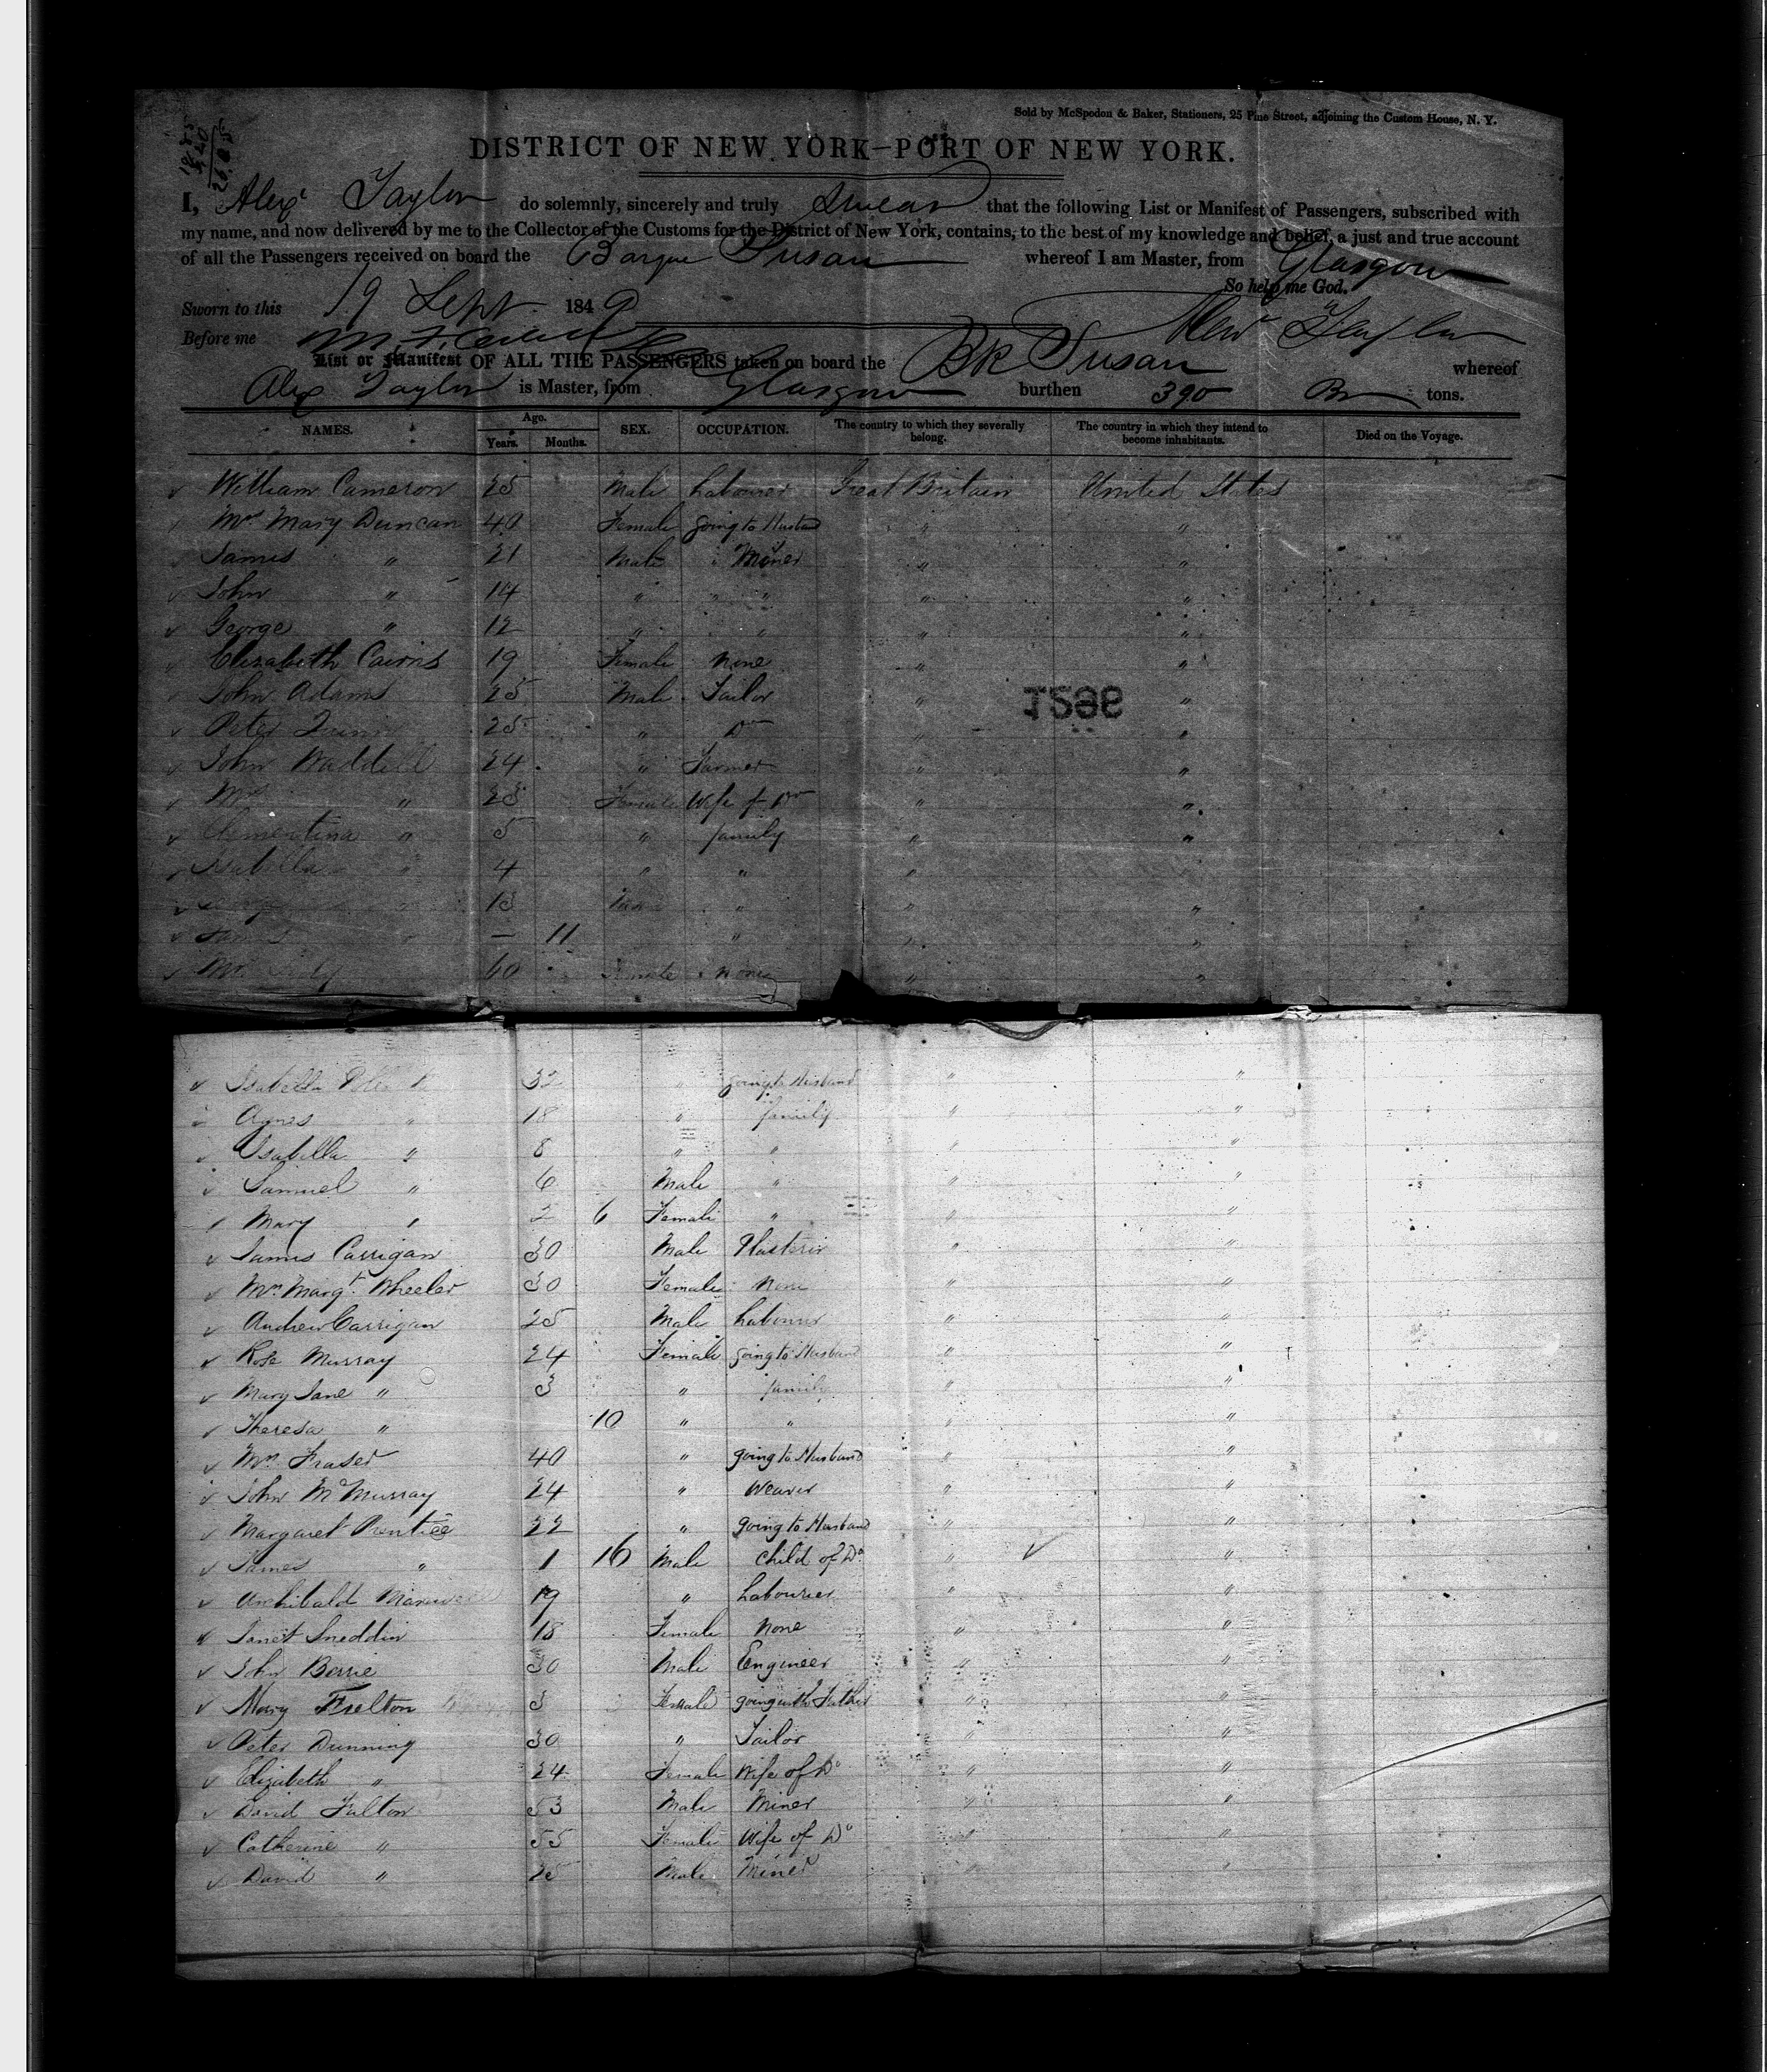 Sold by McSpedon & Baker, Stationers, 25 Pine Street, adjoining the Custom House, N. Y.
DISTRICT OF NEW YORK—PORT OF NEW YORK.
I, Alexr Taylor do solemnly, sincerely and truly swear that the following List or Manifest of Passengers, subscribed with
my name, and now delivered by me to the Collector of the Customs for the District of New York, contains, to the best of my knowledge and belief, a just and true account
of all the Passengers received on board the Barque Susan whereof I am Master, from Glasgow
So help me God.
Sworn to this 19 Sept 1849
Before me Alexr Taylor
List or Manifest OF ALL THE PASSENGERS taken on board the Bk Susan whereof
Alex Taylor is Master, from Glasgow burthen 390 tons.
NAMES. Age. Years. Months. SEX. OCCUPATION. The country to which they severally belong. The country in which they intend to become inhabitants. Died on the Voyage.
William Cameron 25 Male Labourer Great Britain United States
Mrs Mary Duncan 40 Female going to Husband " "
James " 21 Male Miner " "
John " 14 " " " "
George " 12 " " " "
Elizabeth Cairns 19 Female None " "
John Adams 25 Male Tailor " "
1598
Peter Quinn 25 " Do " "
John Waddell 24 " Farmer " "
Mrs " 23 Female Wife of Do " "
Clementina " 5 " family " "
Isabella " 4 " " " "
13 " " "
James " — 11 " " "
Mrs 60 Female None " "
Isabella 32 " going to Husband " "
Agnes " 18 " family " "
Isabella " 8 " " " "
Samuel " 6 Male " " "
Mary " 2 6 Female " " "
James Carrigan 30 Male Plasterer " "
Mrs Margt Wheeler 30 Female None " "
Andrew Carrigan 25 Male Labourer " "
Rose Murray 24 Female going to Husband " "
Mary Jane " 3 " family " "
Theresa " 10 " " "
Mrs Fraser 40 " going to Husband " "
John McMurray 24 " Weaver " "
Margaret Prentice 22 " going to Husband " "
James " 1 16 Male child of Do " "
Archibald 19 " Labourer " "
Janet Sneddin 18 Female None " "
John Berrie 30 Male Engineer " "
Mary Frelton 3 Female going with Father " "
Peter Dunning 30 " Tailor "
Elizabeth " 24 Female Wife of Do " "
David Fulton 53 Male Miner " "
Catherine " 55 Female Wife of Do " "
David " 25 Male Miner " "